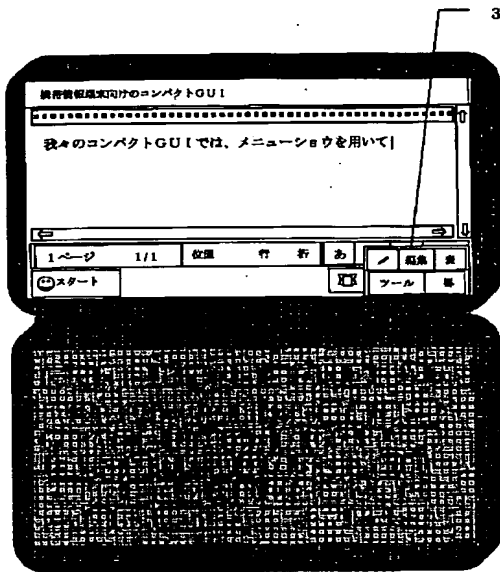 3
携帯情報端末向けのコンパクトGUI
我々のコンパクトGUIでは、メニューショウを用いて|
1ページ 1/1 位置 行 桁 あ
編集 表
スタート ツール